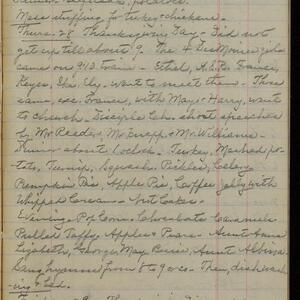 potatoes.
Mess stuffing for turkey & chicken.
Thurs. 28 Thanksgiving Day - Did not
get up till about 9. The 4 Des Moines girls
came on 9 1/2 train - Ethel,
Keyes, went to meet them - Those
same, ex. France, with May & Harry, went
to church. Disciple Ch. short speeches
by Mr. Reeder, Mr. Knepp & Mr. Williams.
Dinner about 1 oclock. Turkey, Mashed po-
tato, Turnip, Squash, Pickles, Celery
Pumpkin Pie, Apple Pie, Coffee jelly with
Whipped Cream - Nut Cakes -
Evening - Pop Corn, Chocolate Caramels
Pulled Taffy, Apples & Pears - Aunt Anna
Lizabeth, George, May Aunt Albina
Sang hymns from 8 to 9 oc - Then, dish wash-
ing & bed.